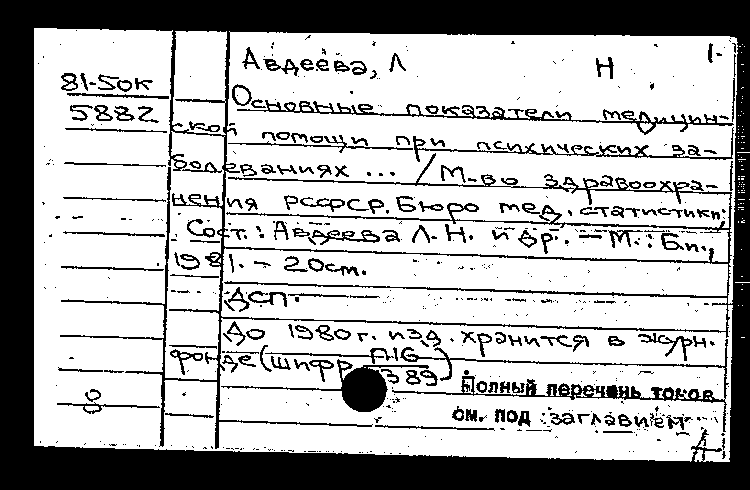 1-
Авдеева, Л Н
81-50к
5882
Основные показатели медицин-
ской помощи при психических за-
болеваниях ... / М-во здравоохра-
нения РСФСР. Бюро мед. статистики;
Сост.: Авдеева Л.Н. и др. — М.: Б.и.,
1981. - 20см.
ДСП.
До 1980 г. изд. хранится в журн.
фонде (шифр П16
389).
Полный перечень томов
см. под заглавием